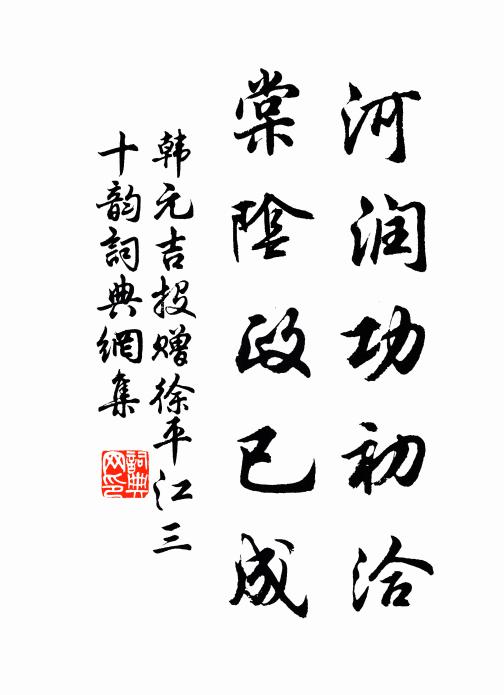 河润功初洽
棠陰政已成
韩元吉投赠徐平江三
十韵詞典網集
詞典
网印